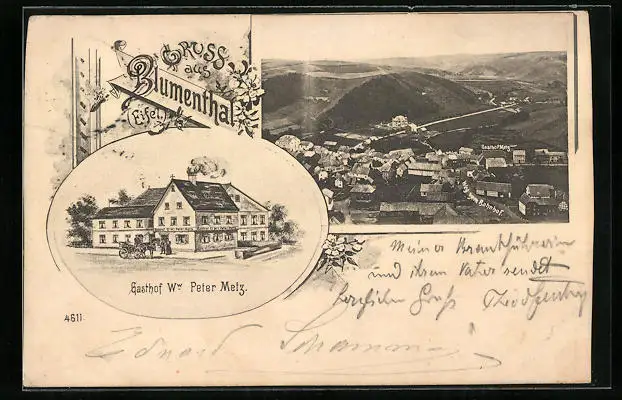 GRUSS
aus
Blumenthal
(Eifel.)
Gasthof Metz
Bahnhof.
Gasthof Wᵂ Peter Metz.
4611.
Meiner Brautführerin
und ihrem Vater sendet
herzlichen Gruß
Eduard